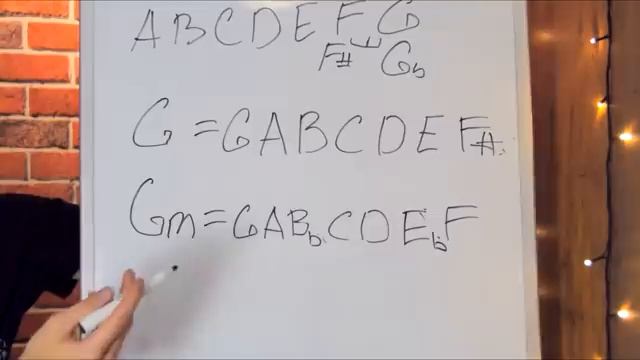 A B C D E F G
F# Gb
G = G A B C D E F#
Gm = G A Bb C D Eb F